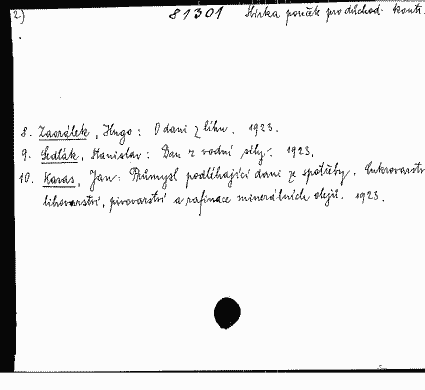 2.) 81301 Sbírka pouček pro důchod. kontr.
8. Zaorálek, Hugo: O dani z lihu. 1923.
9. Sedlák, Stanislav: Daň z vodní síly. 1923.
10. Karas, Jan: Průmysl podléhající dani ze spotřeby. Cukrovarství
lihovarství, pivovarství a rafinace minerálních olejů. 1923.